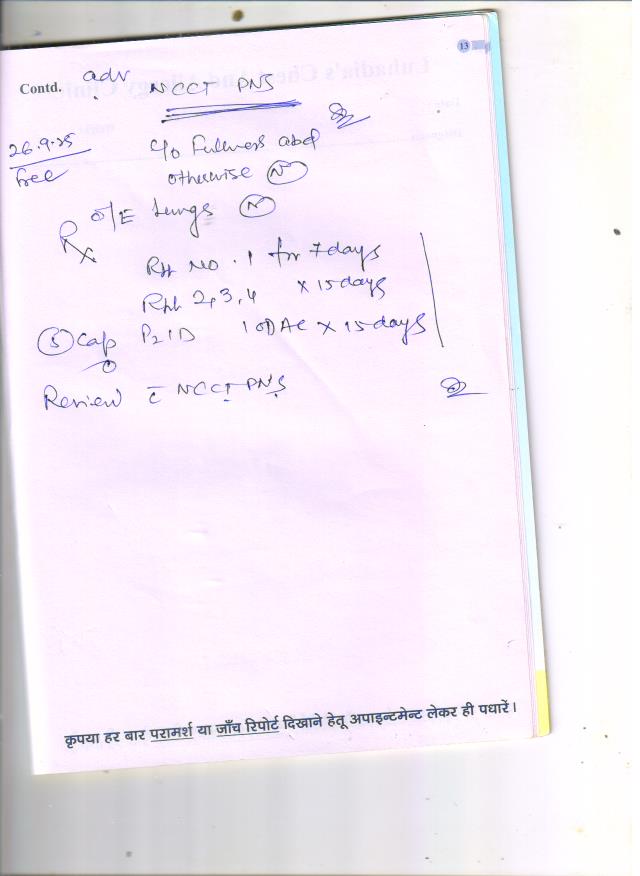 13
Contd. adv NCCT PNS
26.9.25 c/o Fullness abd
free otherwise N
O/E Lungs N
Rx
Rpt No. 1 for 7 days
Rpt 2, 3, 4 x 15 days
5 Cap 1 OD AC x 15 days
Review c̄ NCCT PNS
कृपया हर बार परामर्श या जाँच रिपोर्ट दिखाने हेतू अपाइन्टमेन्ट लेकर ही पधारें।